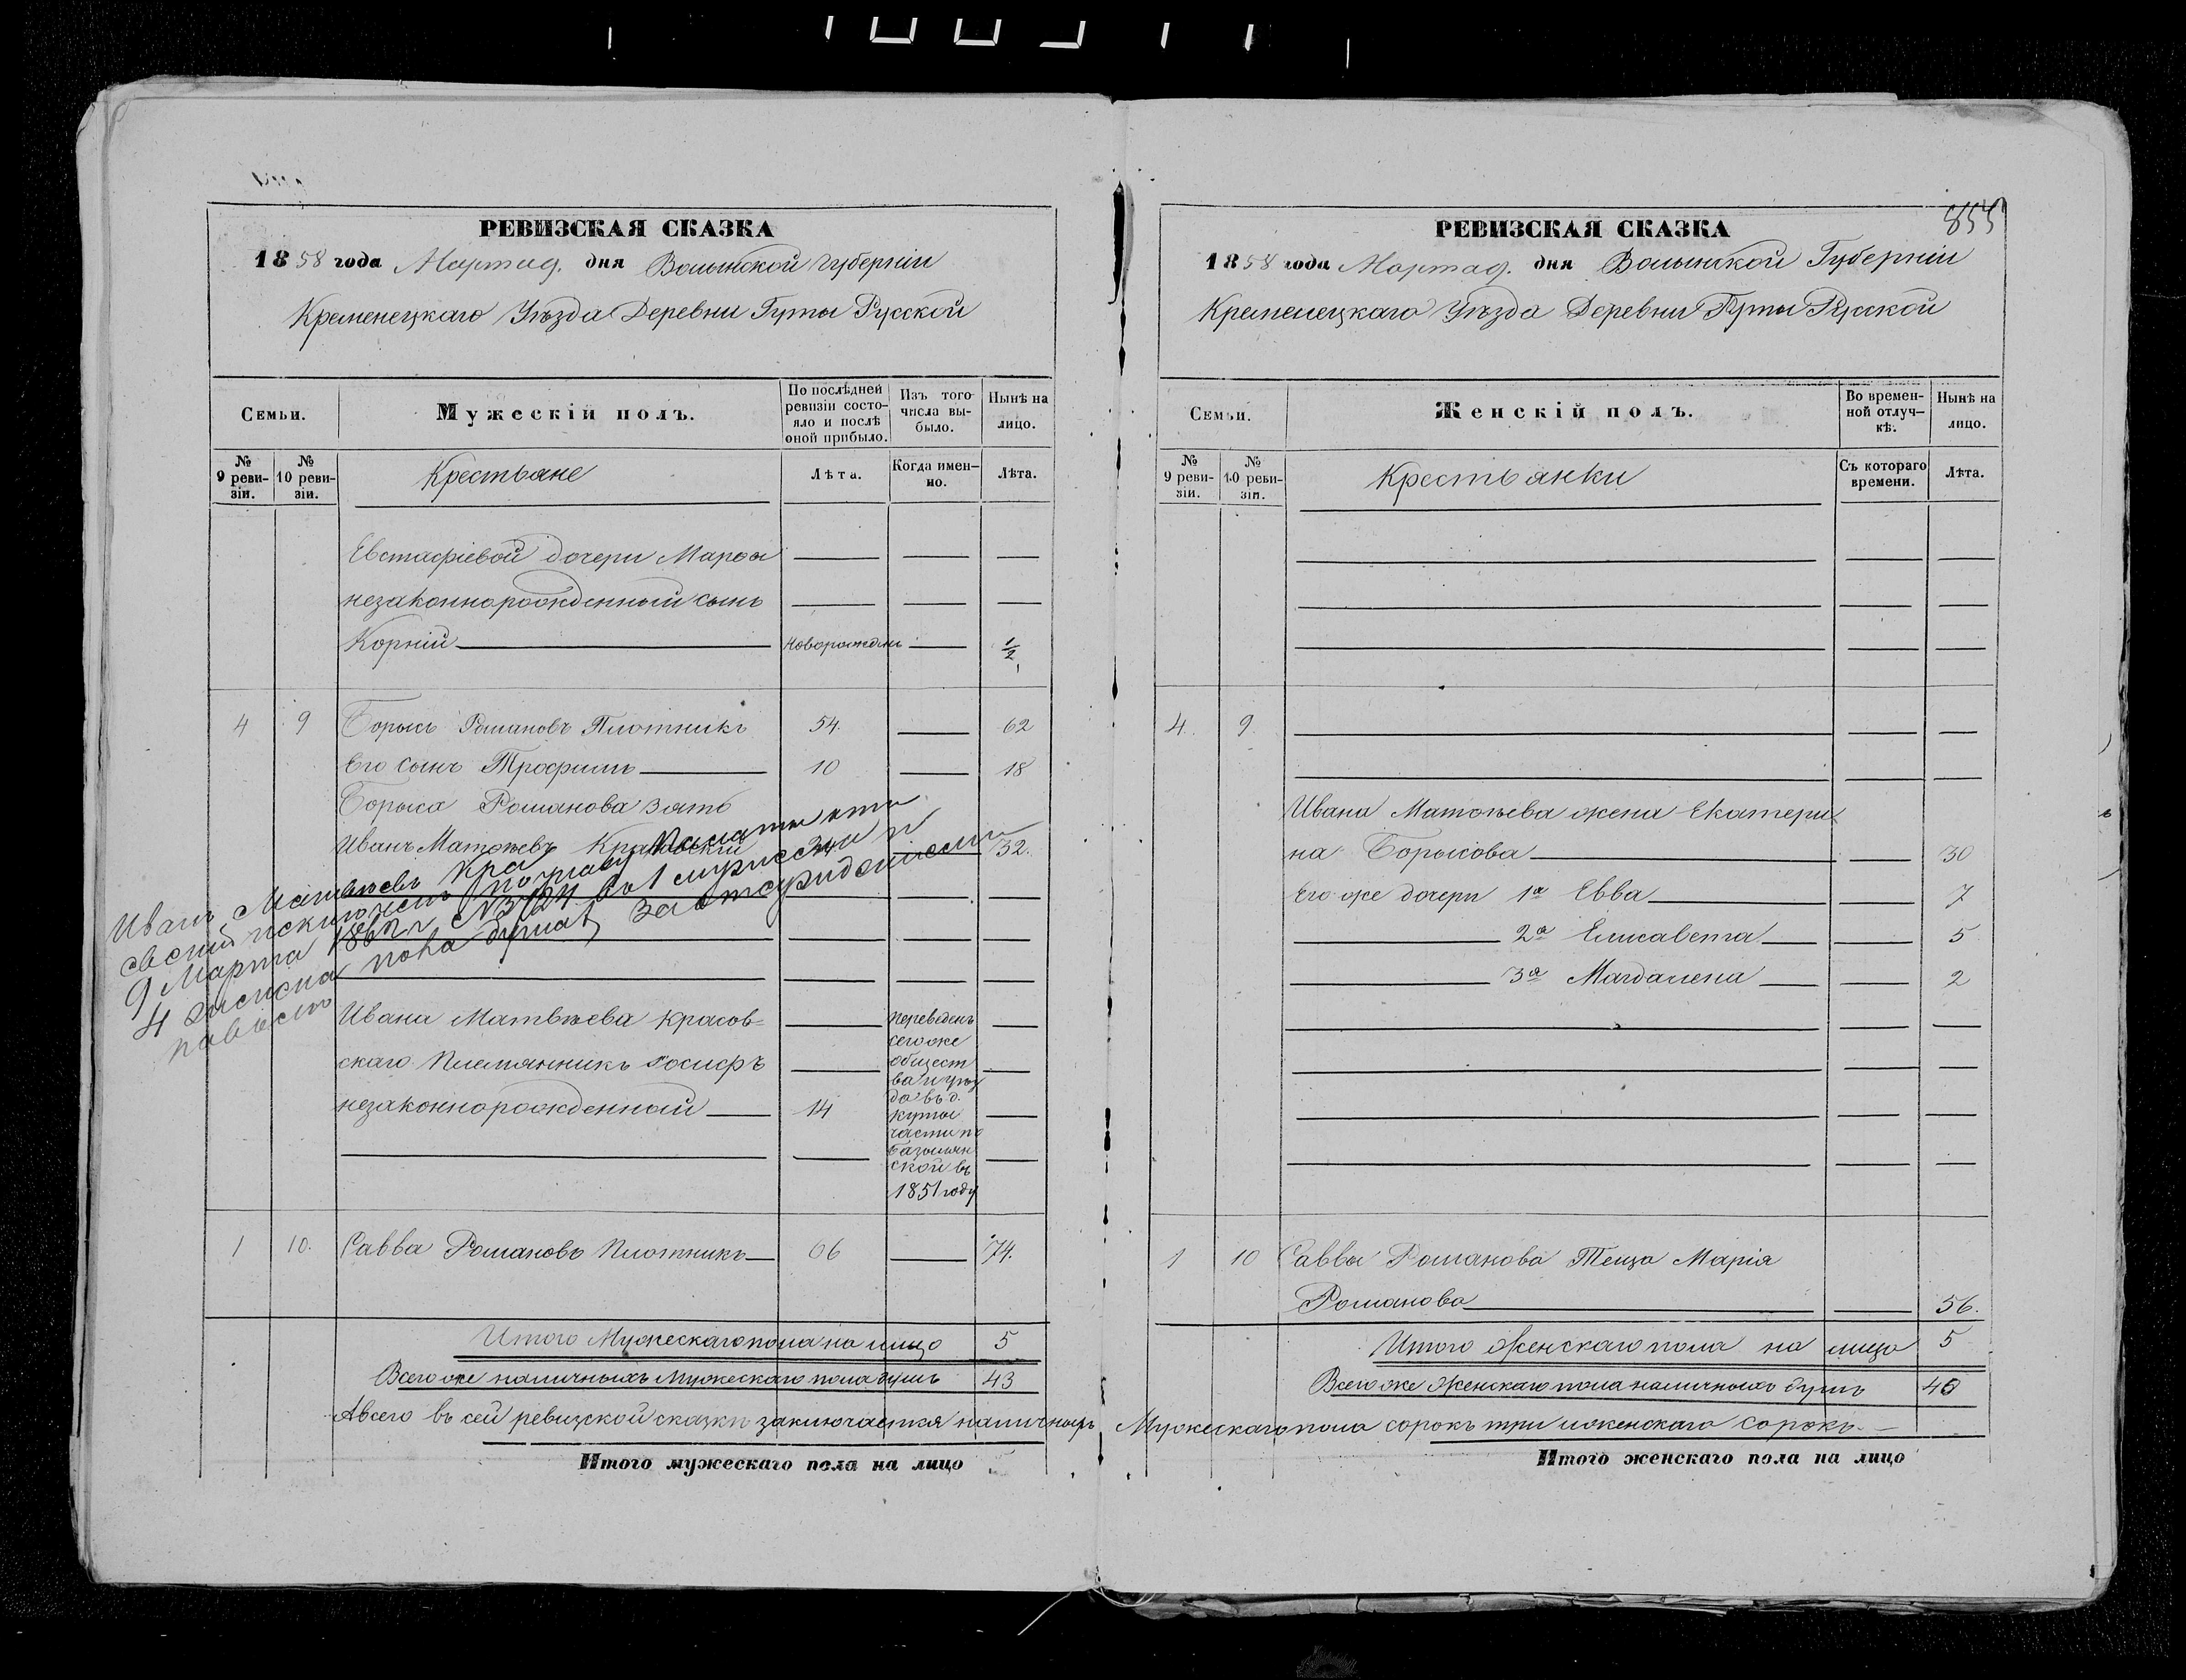 РЕВИЗСКАЯ СКАЗКА
1858 года Марта 9. дня Волынской Губерніи
Кременецкаго Уѣзда Деревни Гуты Русской
Семьи.
Мужескій полъ.
По послѣдней
ревизіи состо-
яло и послѣ
оной прибыло.
Изъ того
числа вы-
было.
Нынѣ на
лицо.
№
9 реви-
зіи.
№
10 реви-
зіи.
Крестьяне
Лѣта.
Когда имен-
но.
Лѣта.
Евстафіевой дочери Марѳы
незаконнорожденный сынъ
Корній новорожден 1/2
4 9 Борысъ Романовъ Плотникъ 54. 62
Его сынъ Трофимъ 10 18
Борыса Романова зять
Иванъ Матвѣевъ Красовскій 24 32.
Иванъ Матвѣевъ Кра
Палаты
9 Марта 1862 г №
4
Ивана Матвѣева Красов=
скаго Племянникъ Іосифъ
незаконнорожденный 14
переведенъ
сегоже
общест
ва и уѣз
да въ д.
Куты
части по
ской въ
1851 году
1 10. Савва Романовъ Плотникъ 66 74.
Итого Мужескаго пола на лицо 5
Всего же наличныхъ Мужескаго пола душъ 43
А всего въ сей ревизской сказкѣ заключается наличныхъ
Итого мужескаго пола на лицо
855
РЕВИЗСКАЯ СКАЗКА
1858 года Марта 9. дня Волынской Губерніи
Кременецкаго Уѣзда Деревни Гуты Русской
Семьи.
Женскій полъ.
Во времен-
ной отлуч-
кѣ.
Нынѣ на
лицо.
№
9 реви-
зіи.
№
10 реви-
зіи.
Крестьянки
Съ котораго
времени.
Лѣта.
4. 9.
Ивана Матвѣева жена Екатери
на Борысова 30
Его же дочери 1я Евва 7
2я Елисавета 5
3я Магдалена 2
1 10 Саввы Романова Теща Марія
Романова 56.
Итого Женскаго пола на лицо 5
Всего же Женскаго пола наличныхъ душъ 40
Мужескаго пола сорокъ три и женскаго сорокъ.
Итого женскаго пола на лицо